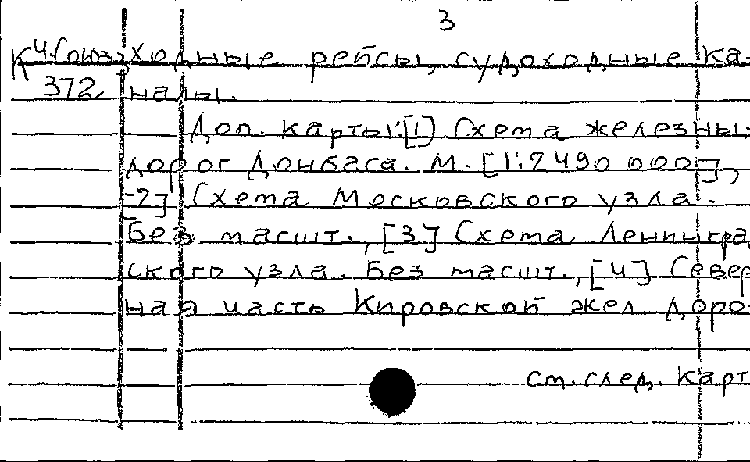 3
К4(оиз)ходные рейсы, судоходные ка-
372 налы.
Доп. карты:[1] Схема железны
дорог Донбаса. М. [1:2490 000],
[2] Схема Московского узла.
Без масшт., [3] Схема Ленингра
ского узла. Без масшт., [4] Север
ная часть Кировской жел доро
см. след. карт